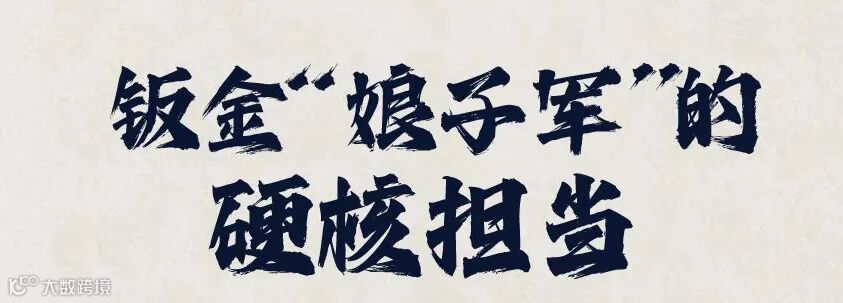 钣金“娘子军”的
硬核担当
大数跨境